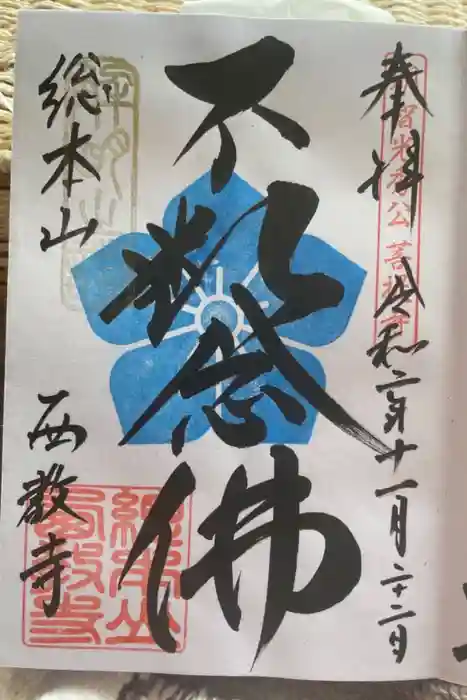 奉拝
令和二年十一月二十二日
光秀公菩提寺
不断念佛
総本山
西教寺
総本山西教寺